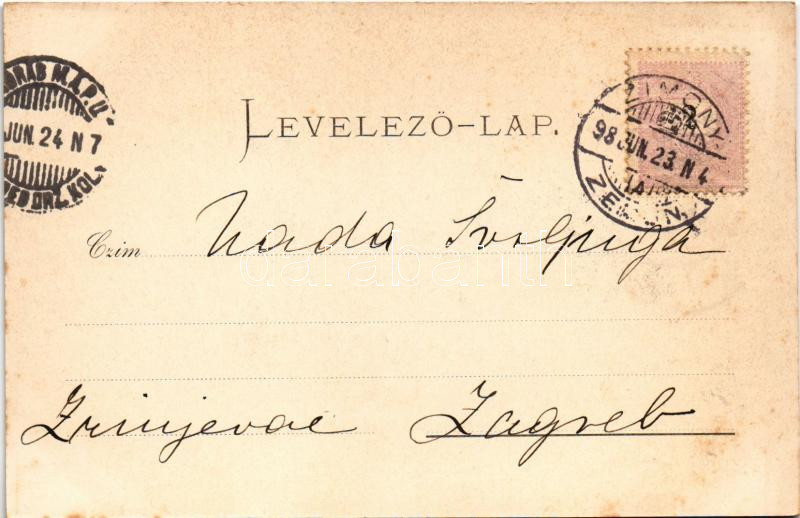 LEVELEZŐ-LAP.
ZIMONY
98 JUN. 23. N 4
ZEMUN
JUN. 24 N 7
Czim Nada Švrljuga
Zrinjevac Zagreb
darabanth